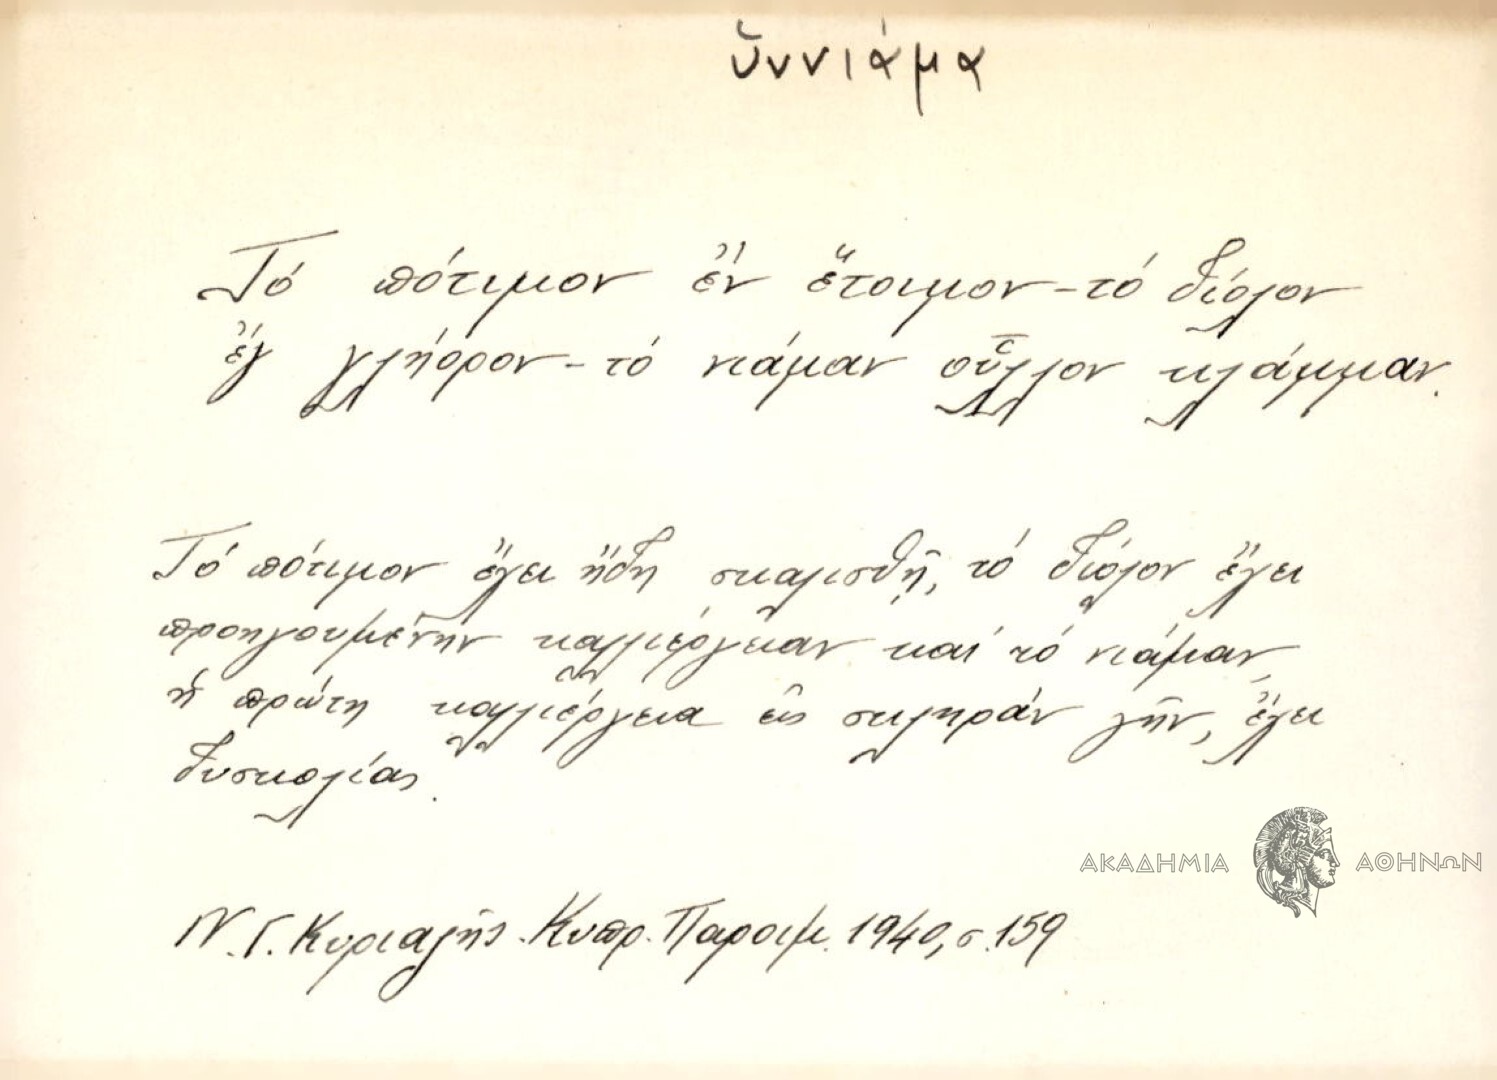 ὑννιάμα
Τό πότιμον ἔν ἕτοιμον - τό διόλον
ἔγ γλήορον - τό νιάμαν οὗλλον κλάμμαν.
Τό πότιμον ἔχει ἤδη σκαλισθῆ, τό διόλον ἔχει
προηγουμένην καλλιέργειαν καί τό νιάμαν,
ἡ πρώτη καλλιέργεια εἰς σκληράν γῆν, ἔχει
δυσκολίας.
ΑΚΑΔΗΜΙΑ ΑΘΗΝΩΝ
Ν. Γ. Κυριαζῆς. Κυπρ. Παροιμ. 1940, σ. 159